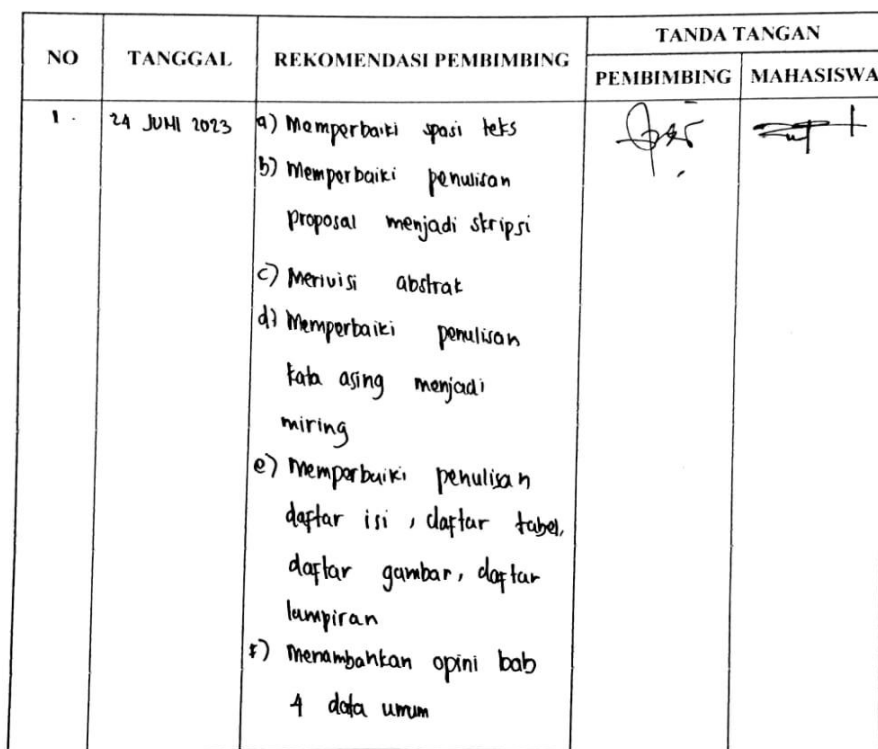 NO TANGGAL REKOMENDASI PEMBIMBING TANDA TANGAN
PEMBIMBING MAHASISWA
1. 24 JUNI 2023 a) Memperbaiki spasi teks
b) Memperbaiki penulisan
proposal menjadi skripsi
c) Merivisi abstrak
d) Memperbaiki penulisan
kata asing menjadi
miring
e) Memperbaiki penulisan
daftar isi, daftar tabel,
daftar gambar, daftar
lampiran
f) Menambahkan opini bab
4 data umum